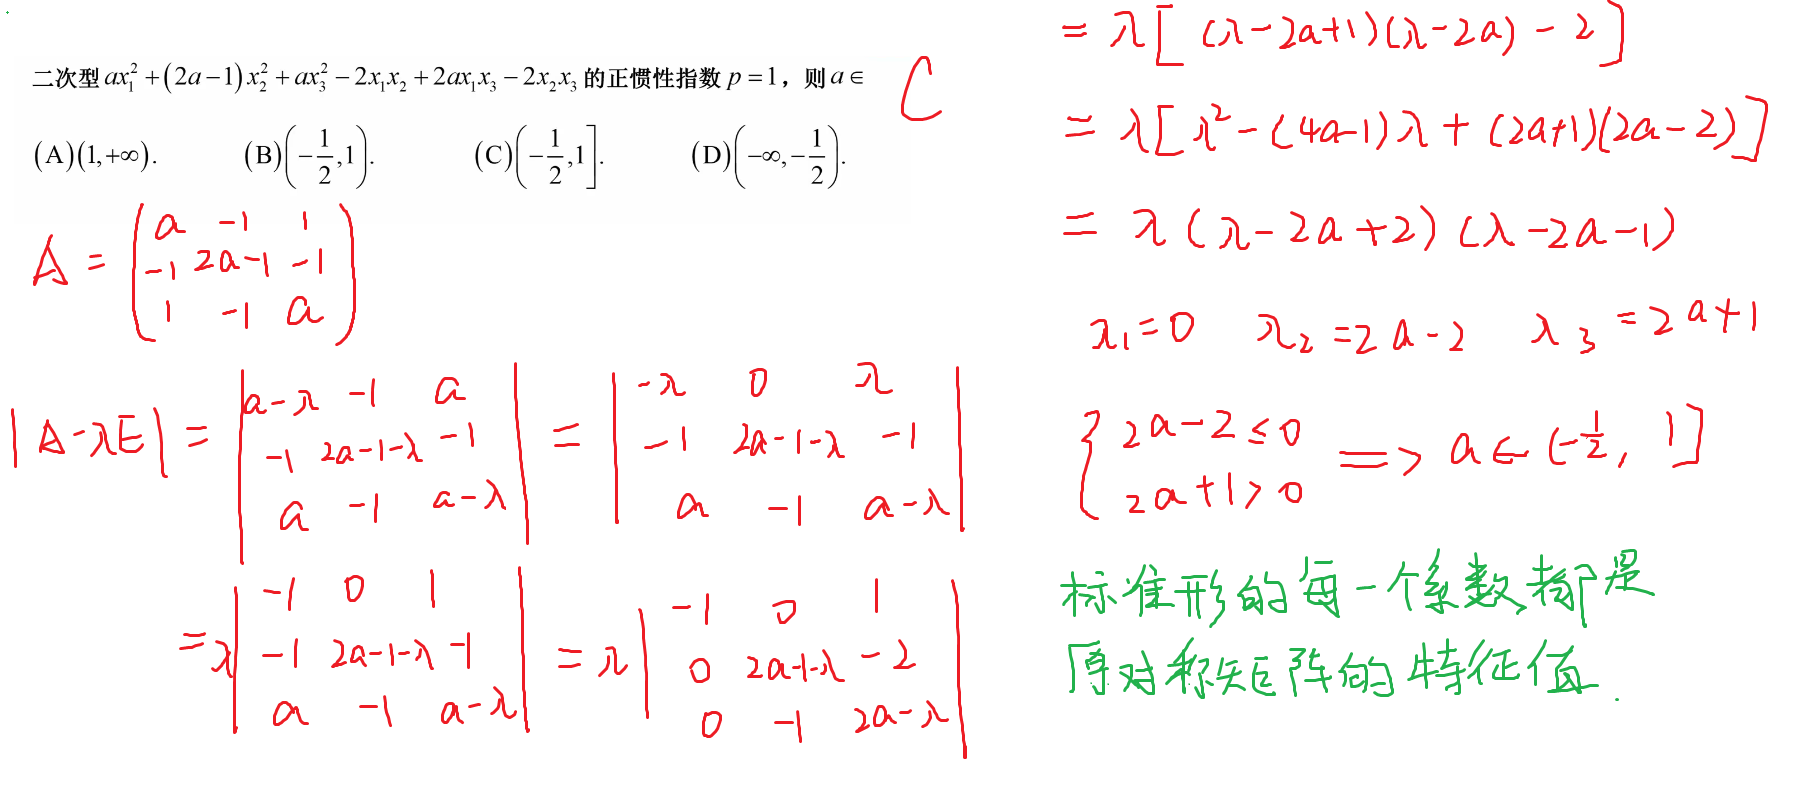 二次型 ax₁² + (2a−1)x₂² + ax₃² − 2x₁x₂ + 2ax₁x₃ − 2x₂x₃ 的正惯性指数 p = 1，则 a ∈ C
(A)(1,+∞). (B)(−1/2,1). (C)(−1/2,1]. (D)(−∞,−1/2).
A = ( a −1 1
−1 2a−1 −1
1 −1 a )
|A−λE| = | a−λ −1 a
−1 2a−1−λ −1
a −1 a−λ |
= | −λ 0 λ
−1 2a−1−λ −1
a −1 a−λ |
= λ | −1 0 1
−1 2a−1−λ −1
a −1 a−λ |
= λ | −1 0 1
0 2a−1−λ −2
0 −1 2a−λ |
= λ[(λ−2a+1)(λ−2a)−2]
= λ[λ²−(4a−1)λ+(2a+1)(2a−2)]
= λ(λ−2a+2)(λ−2a−1)
λ₁=0 λ₂=2a−2 λ₃=2a+1
{ 2a−2≤0
2a+1>0 ⟹ a∈(−1/2, 1]
标准形的每一个系数都是
原对称矩阵的特征值.